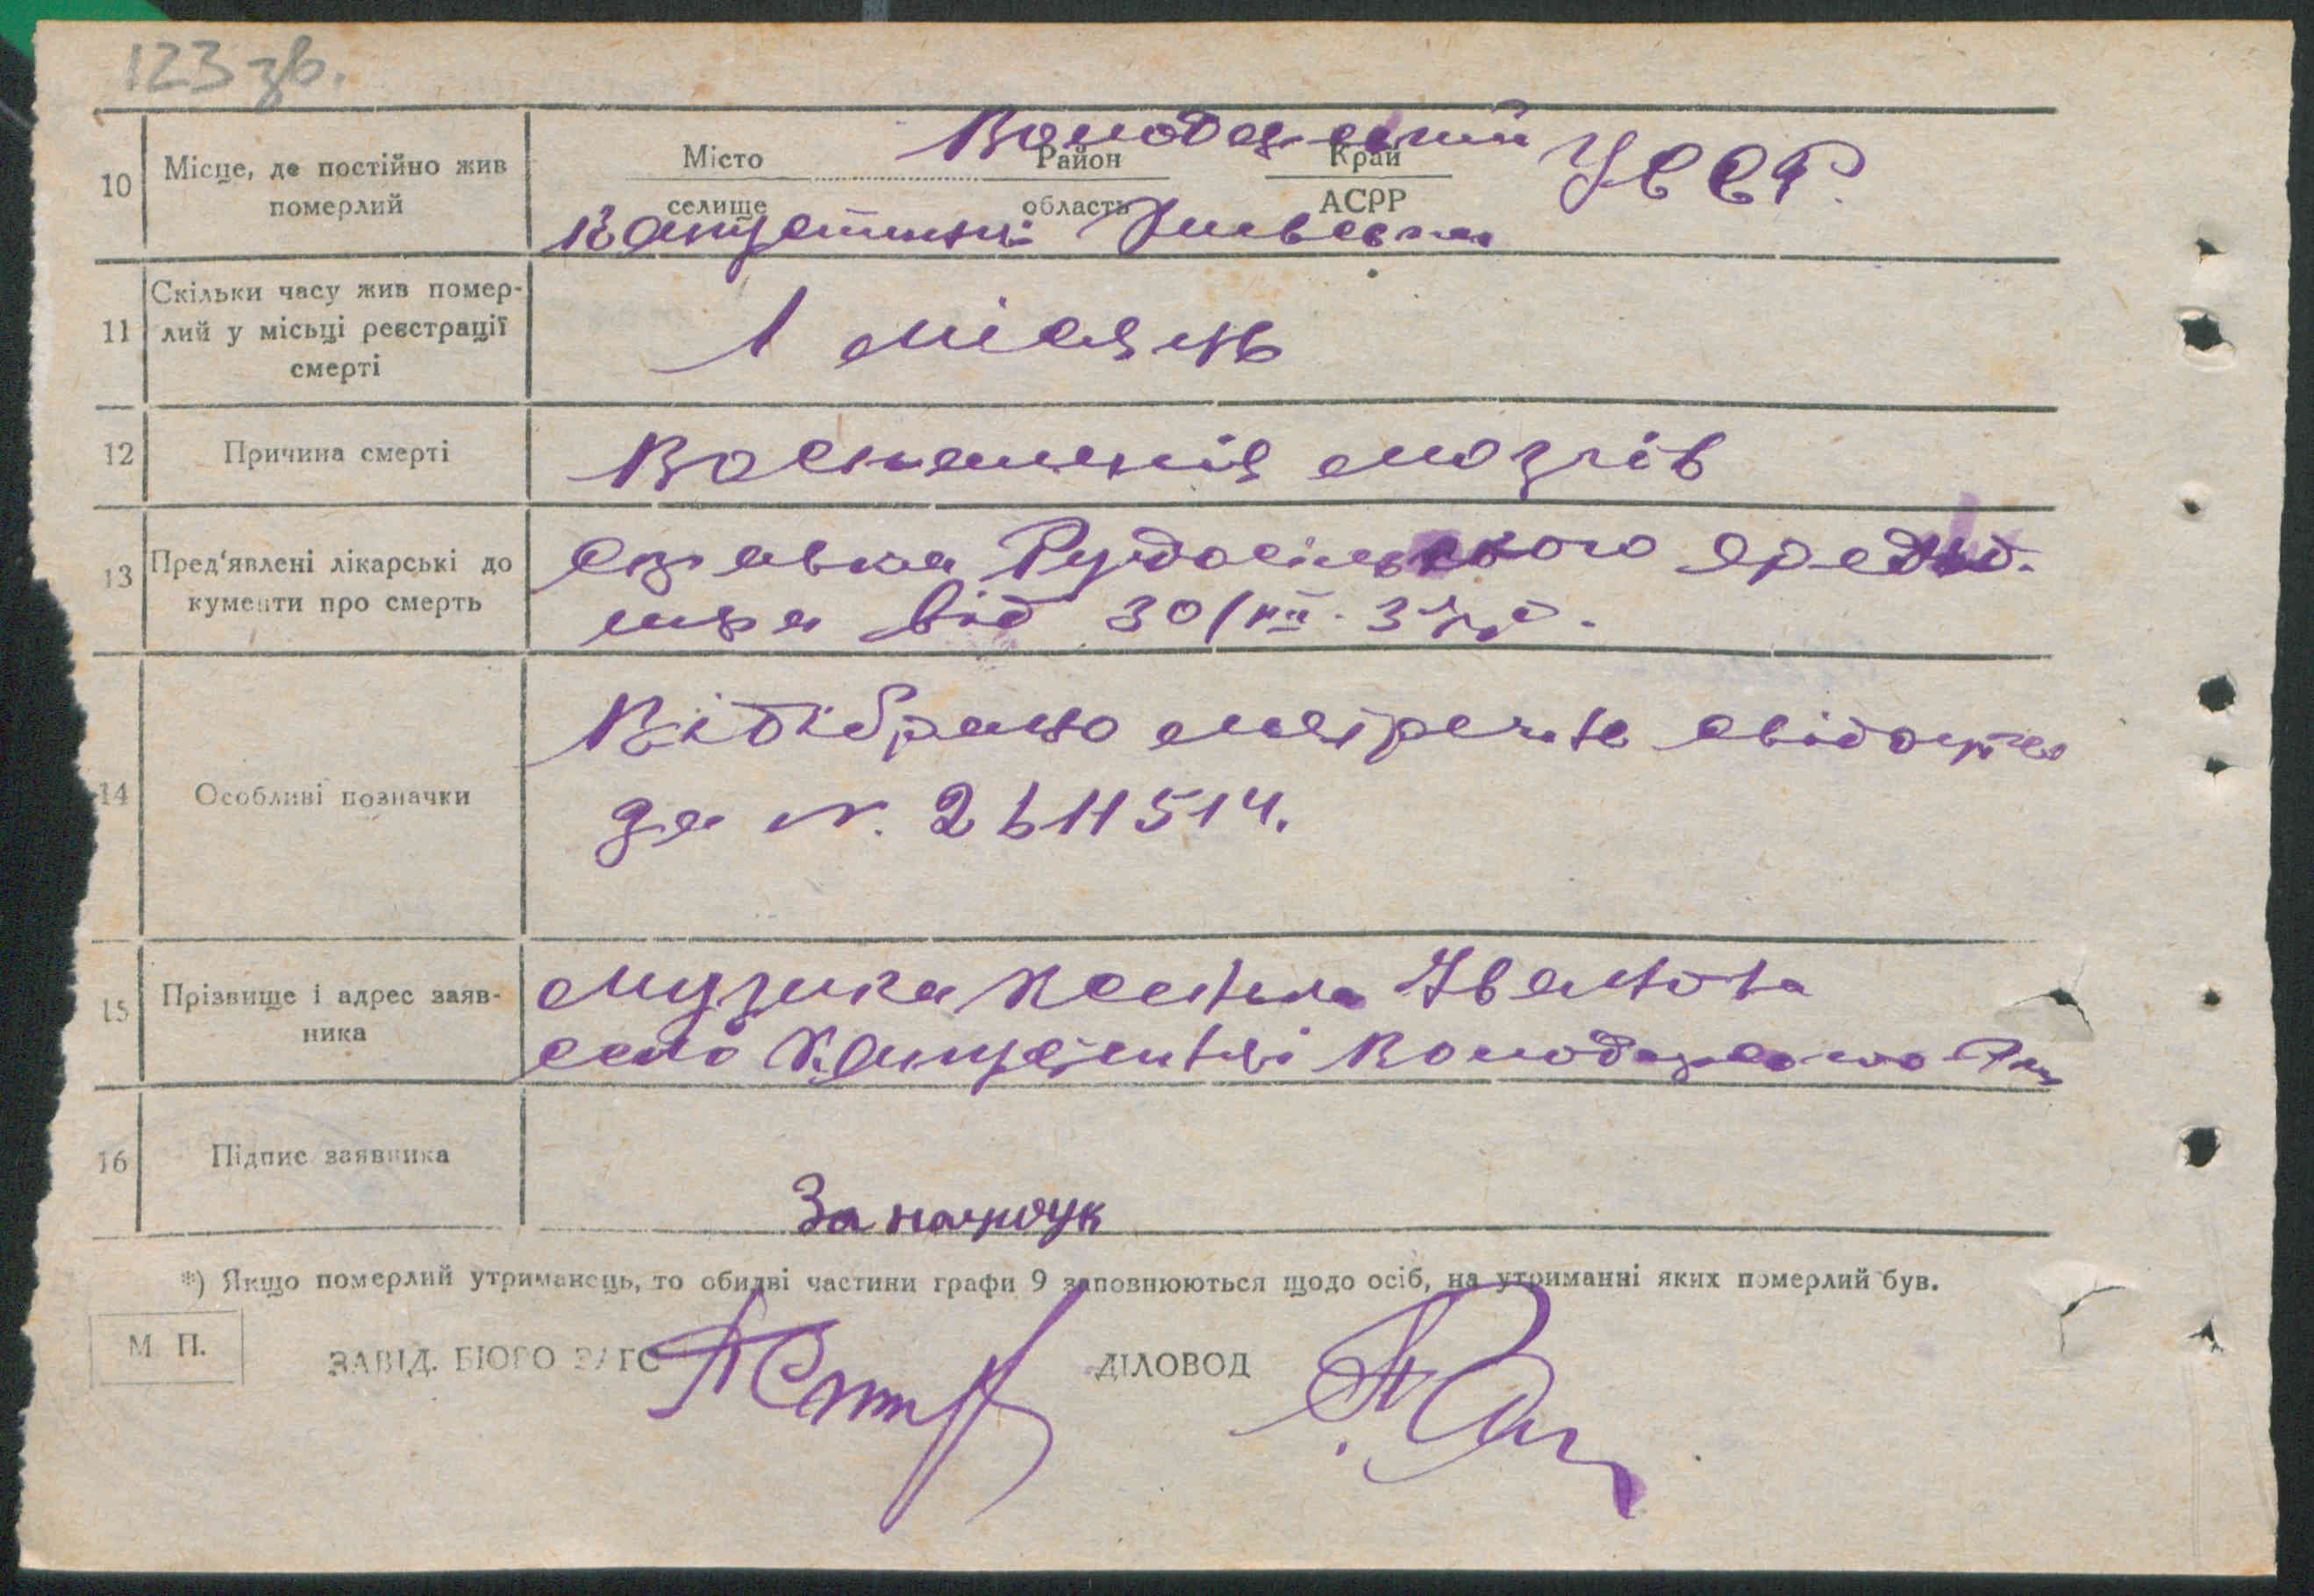 123 зв.
Володарский УССР.
10 Місце, де постійно жив померлий
Місто Район Край
селище область АСРР
Капустинці Київська
11 Скільки часу жив помер-
лий у місьці реєстрації
смерті
1 місяць
12 Причина смерті
Воспаленія мозгів
13 Пред'явлені лікарські до
кументи про смерть
справка Рудосільського
від 30/VII. 37 р.
14 Особливі позначки
Відібрано метречне свідоцтво
за N. 2611514.
15 Прізвище і адрес заяв-
ника
Музика Івановна
село Капустинці Володарського р-ну
16 Підпис заявника
*) Якщо померлий утриманець, то обидві частини графи 9 заповнюються щодо осіб, на утриманні яких померлий був.
М. П. ЗАВІД. БЮРО ЗАГС ДІЛОВОД